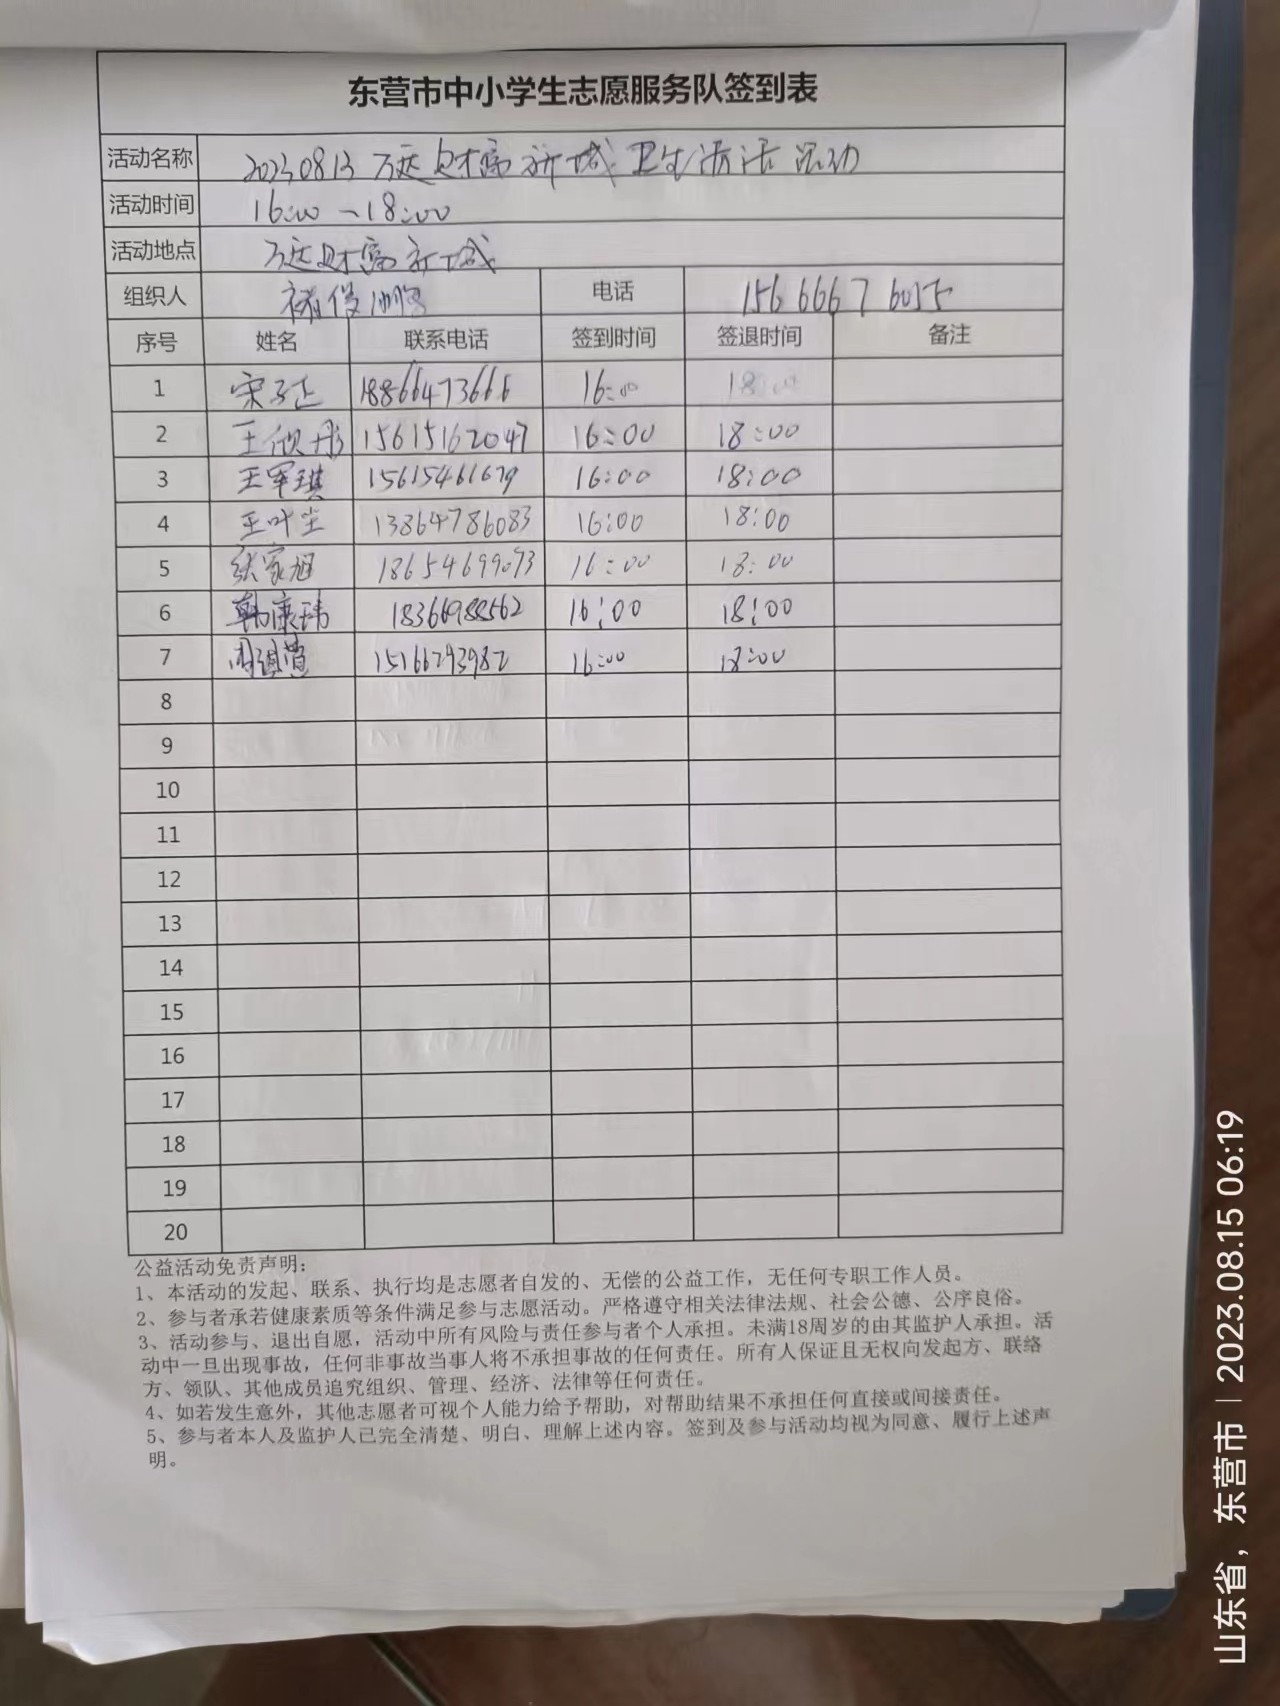 东营市中小学生志愿服务队签到表
活动名称 20230813 万达财富新城 卫生清洁活动
活动时间 16:00-18:00
活动地点 万达财富新城
组织人 电话 15666676055
序号 姓名 联系电话 签到时间 签退时间 备注
1 宋子正 18866473666 16:00 18:00
2 王欣彤 15615162047 16:00 18:00
3 王军琪 15615461679 16:00 18:00
4 王叶尘 13864786083 16:00 18:00
5 张家旭 18654699093 16:00 18:00
6 韩康玮 18366988562 16:00 18:00
7 15166293982 16:00 18:00
8
9
10
11
12
13
14
15
16
17
18
19
20
公益活动免责声明：
1、本活动的发起、联系、执行均是志愿者自发的、无偿的公益工作，无任何专职工作人员。
2、参与者承若健康素质等条件满足参与志愿活动。严格遵守相关法律法规、社会公德、公序良俗。
3、活动参与、退出自愿，活动中所有风险与责任参与者个人承担。未满18周岁的由其监护人承担。活
动中一旦出现事故，任何非事故当事人将不承担事故的任何责任。所有人保证且无权向发起方、联络
方、领队、其他成员追究组织、管理、经济、法律等任何责任。
4、如若发生意外，其他志愿者可视个人能力给予帮助，对帮助结果不承担任何直接或间接责任。
5、参与者本人及监护人已完全清楚、明白、理解上述内容。签到及参与活动均视为同意、履行上述声
明。
山东省，东营市 | 2023.08.15 06:19